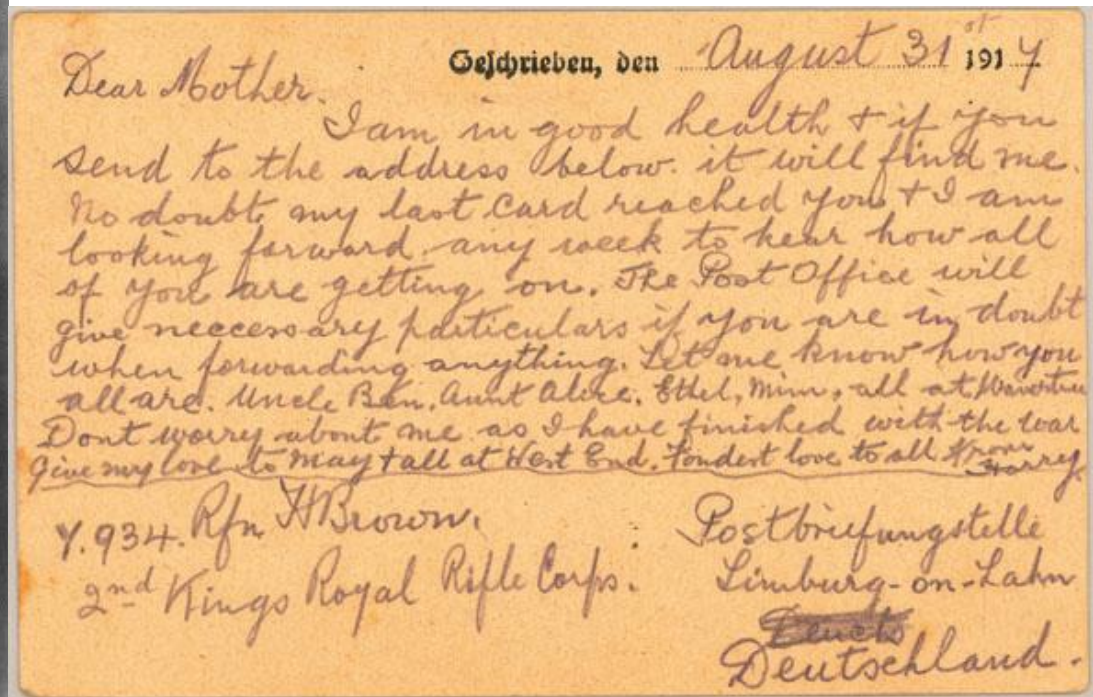 Geschrieben, den August 31st 1917
Dear Mother.
I am in good health & if you
send to the address below. it will find me.
No doubt my last card reached you & I am
looking forward any week to hear how all
of you are getting on. The Post Office will
give neccessary particulars if you are in doubt
when forwarding anything. Let me know how you
all are. Uncle Ben, Aunt Alice, Ethel, Mim, all at
Dont worry about me as I have finished with the war
Give my love to May & all at West End. Fondest love to all from
Harry.
Y.934. Rfn H Brown.
2nd Kings Royal Rifle Corps.
Postbriefungstelle
Limburg-on-Lahn
Deutschland.